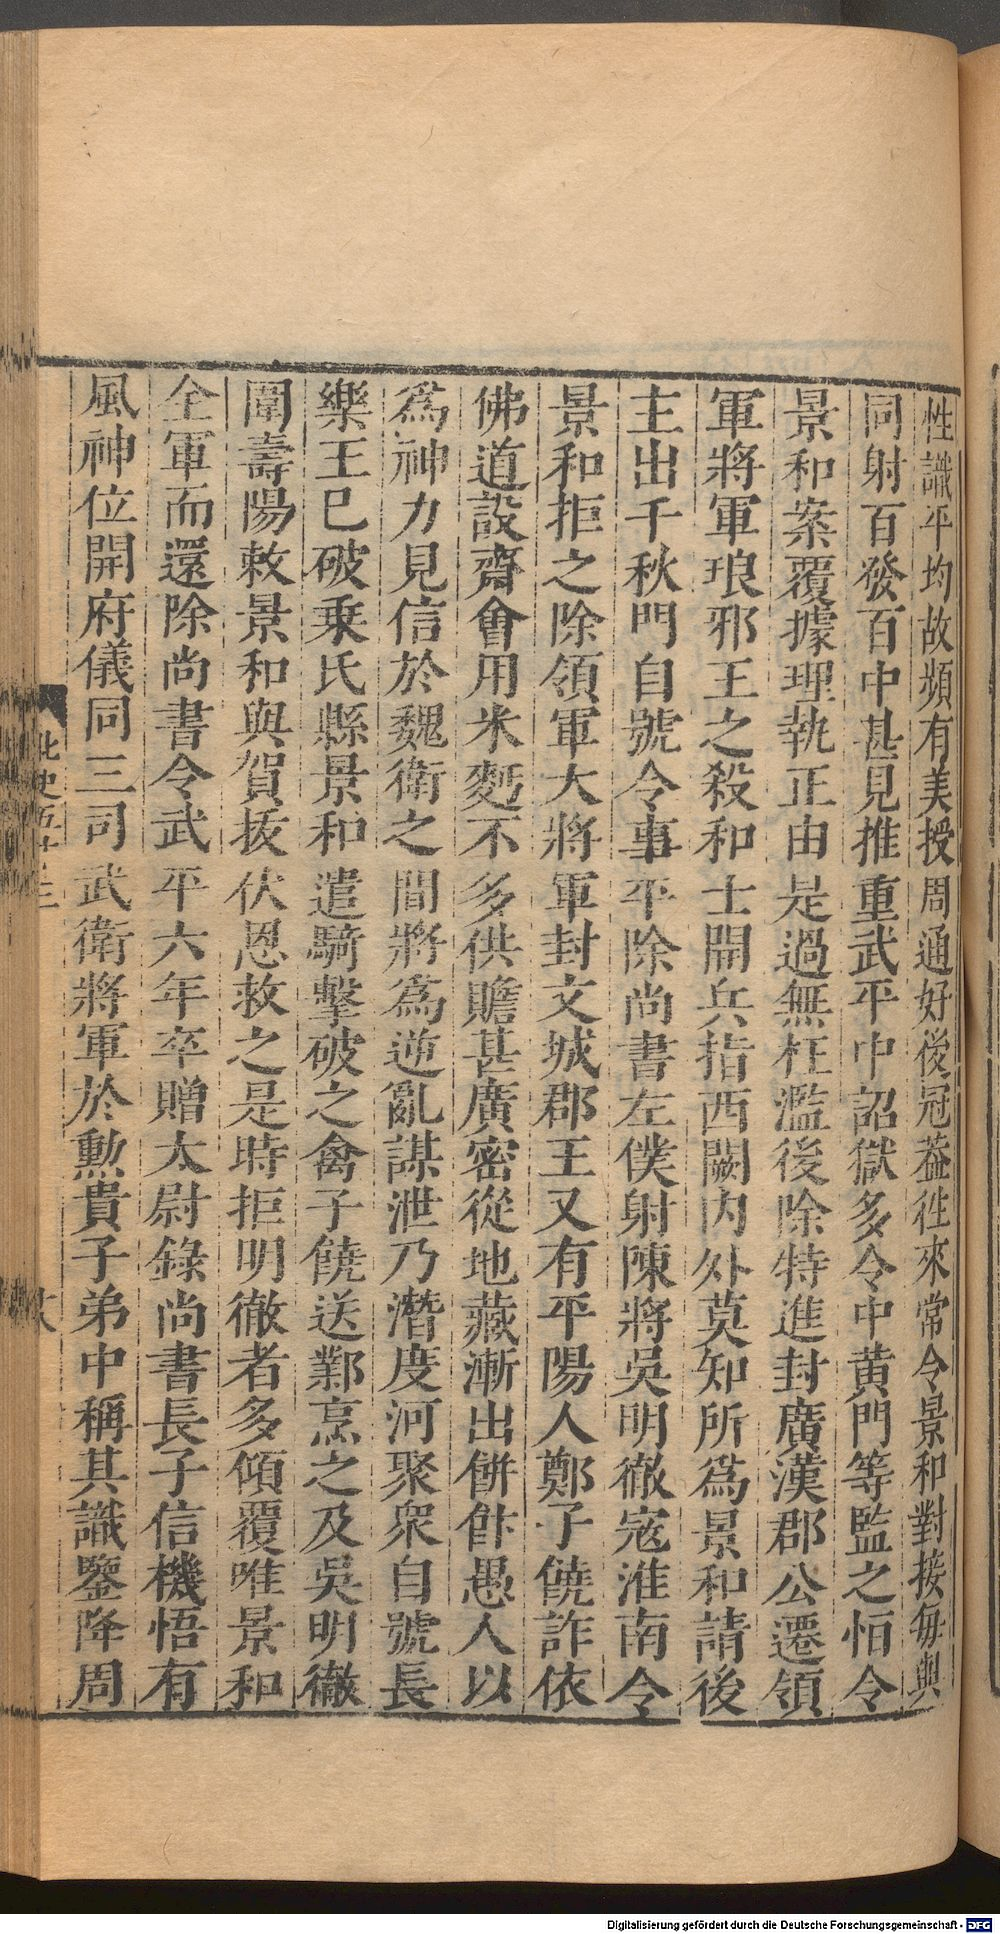 性識平均故頻有美授周通好後冠葢徃來常令景和對接每與
同射百發百中甚見推重武平中詔獄多令中黄門等監之恒令
景和案覆據理執正由是過無枉濫後除特進封廣漢郡公遷領
軍將軍琅邪王之殺和士開兵指西闕内外莫知所爲景和請後
主出千秋門自號令事平除尚書左僕射陳將吳明徹宼淮南令
景和拒之除領軍大將軍封文城郡王又有平陽人鄭子饒詐依
佛道設齋會用米麪不多供贍甚廣密從地藏漸出餅飰愚人以
爲神力見信於魏衛之間將爲逆亂謀泄乃潛度河聚衆自號長
樂王巳破乗氏縣景和遣騎擊破之禽子饒送鄴烹之及吳明徹
圍壽陽敕景和與賀拔伏恩救之是時拒明徹者多傾覆唯景和
全軍而還除尚書令武平六年卒贈太尉錄尚書長子信機悟有
風神位開府儀同三司武衛將軍於勲貴子弟中稱其識鑒降周
北史五十三
Digitalisierung gefördert durch die Deutsche Forschungsgemeinschaft - DFG